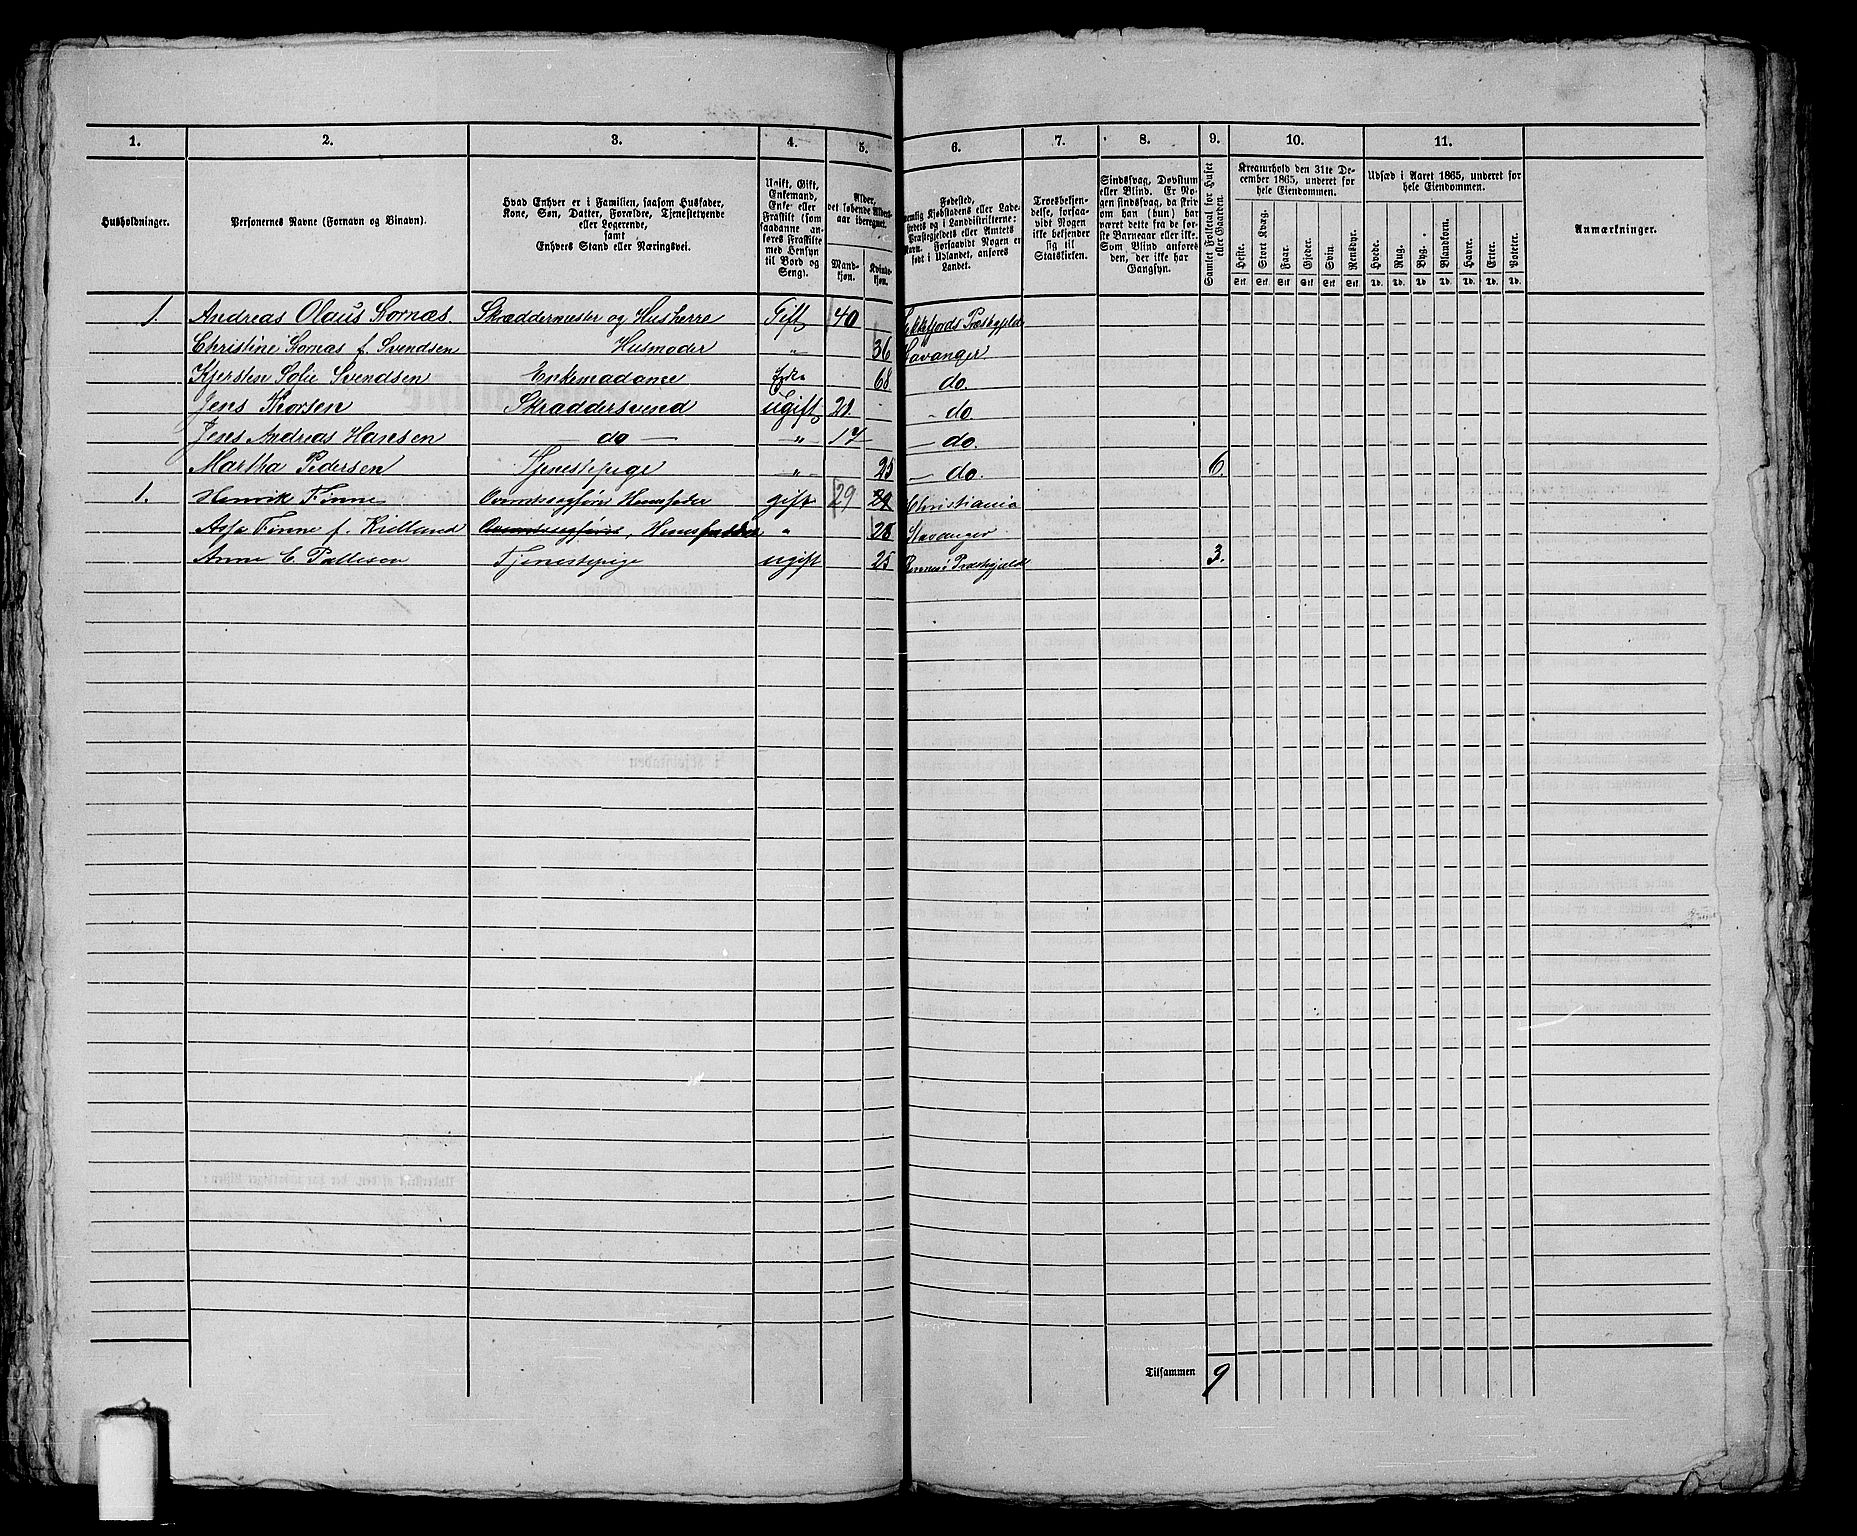 1. 2. 3. 4. 5. 6. 7. 8. 9. 10. 11.
Husholdninger.
Personernes Navne (Fornavn og Binavn).
Hvad Enhver er i Familien, saasom Husfader,
Kone, Søn, Datter, Forældre, Tjenestetyende
eller Logerende,
samt
Enhvers Stand eller Næringsvei.
Ugift, Gift,
Enkemand,
Enke eller
Fraskilt (som
saadanne an-
føres Fraskilte
med Hensyn
til Bord og
Seng).
Alder,
det løbende Alders-
aar iberegnet.
Mand-
kjøn.
Kvinde-
kjøn.
Fødested,
nemlig Kjøbstadens eller Lade-
stedets og i Landdistrikterne:
Præstegjeldets eller Amtets
Navn. Forsaavidt Nogen er
født i Udlandet, anføres
Landet.
Troesbekjen-
delse, forsaa-
vidt Nogen
ikke bekjender
sig til
Statskirken.
Sindssvag, Døvstum
eller Blind. Er No-
gen sindssvag, da skriv
om han (hun) har
været dette fra de før-
ste Barneaar eller ikke.
Som Blind anføres
den, der ikke har
Gangsyn.
Samlet Folketal for Huset
eller Gaarden.
Kreaturhold den 31te De-
cember 1865, underet for
hele Eiendommen.
Heste. Stort Kvæg. Faar. Gjeder. Svin. Rensdyr.
Stk Stk Stk Stk Stk Stk
Udsæd i Aaret 1865, underet for
hele Eiendommen.
Hvede. Rug. Byg. Blandkorn. Havre. Erter. Poteter.
Td. Td. Td Td. Td. Td. Td.
Anmærkninger.
1. Andreas Olaus Sornæs. Skræddermester og Husherre Gift 40 Præstegjeld
Christine Sornæs f. Svendsen Husmoder " 36 Stavanger
Kjersten Sofie Svendsen Enkemadame Enke 68 do.
Jens Thorsen Skræddersvend Ugift 21 - do.
Jens Andreas Hansen — do — " 17 — do.
Martha Pedersen Tjenestepige " 25 — do. 6.
1. Henrik Finne Husfader gift 29 29 Christiania
Finne f. Kielland " 28 Stavanger
Anne C. Tjenestepige ugift 25 Præstegjeld 3.
Tilsammen 9